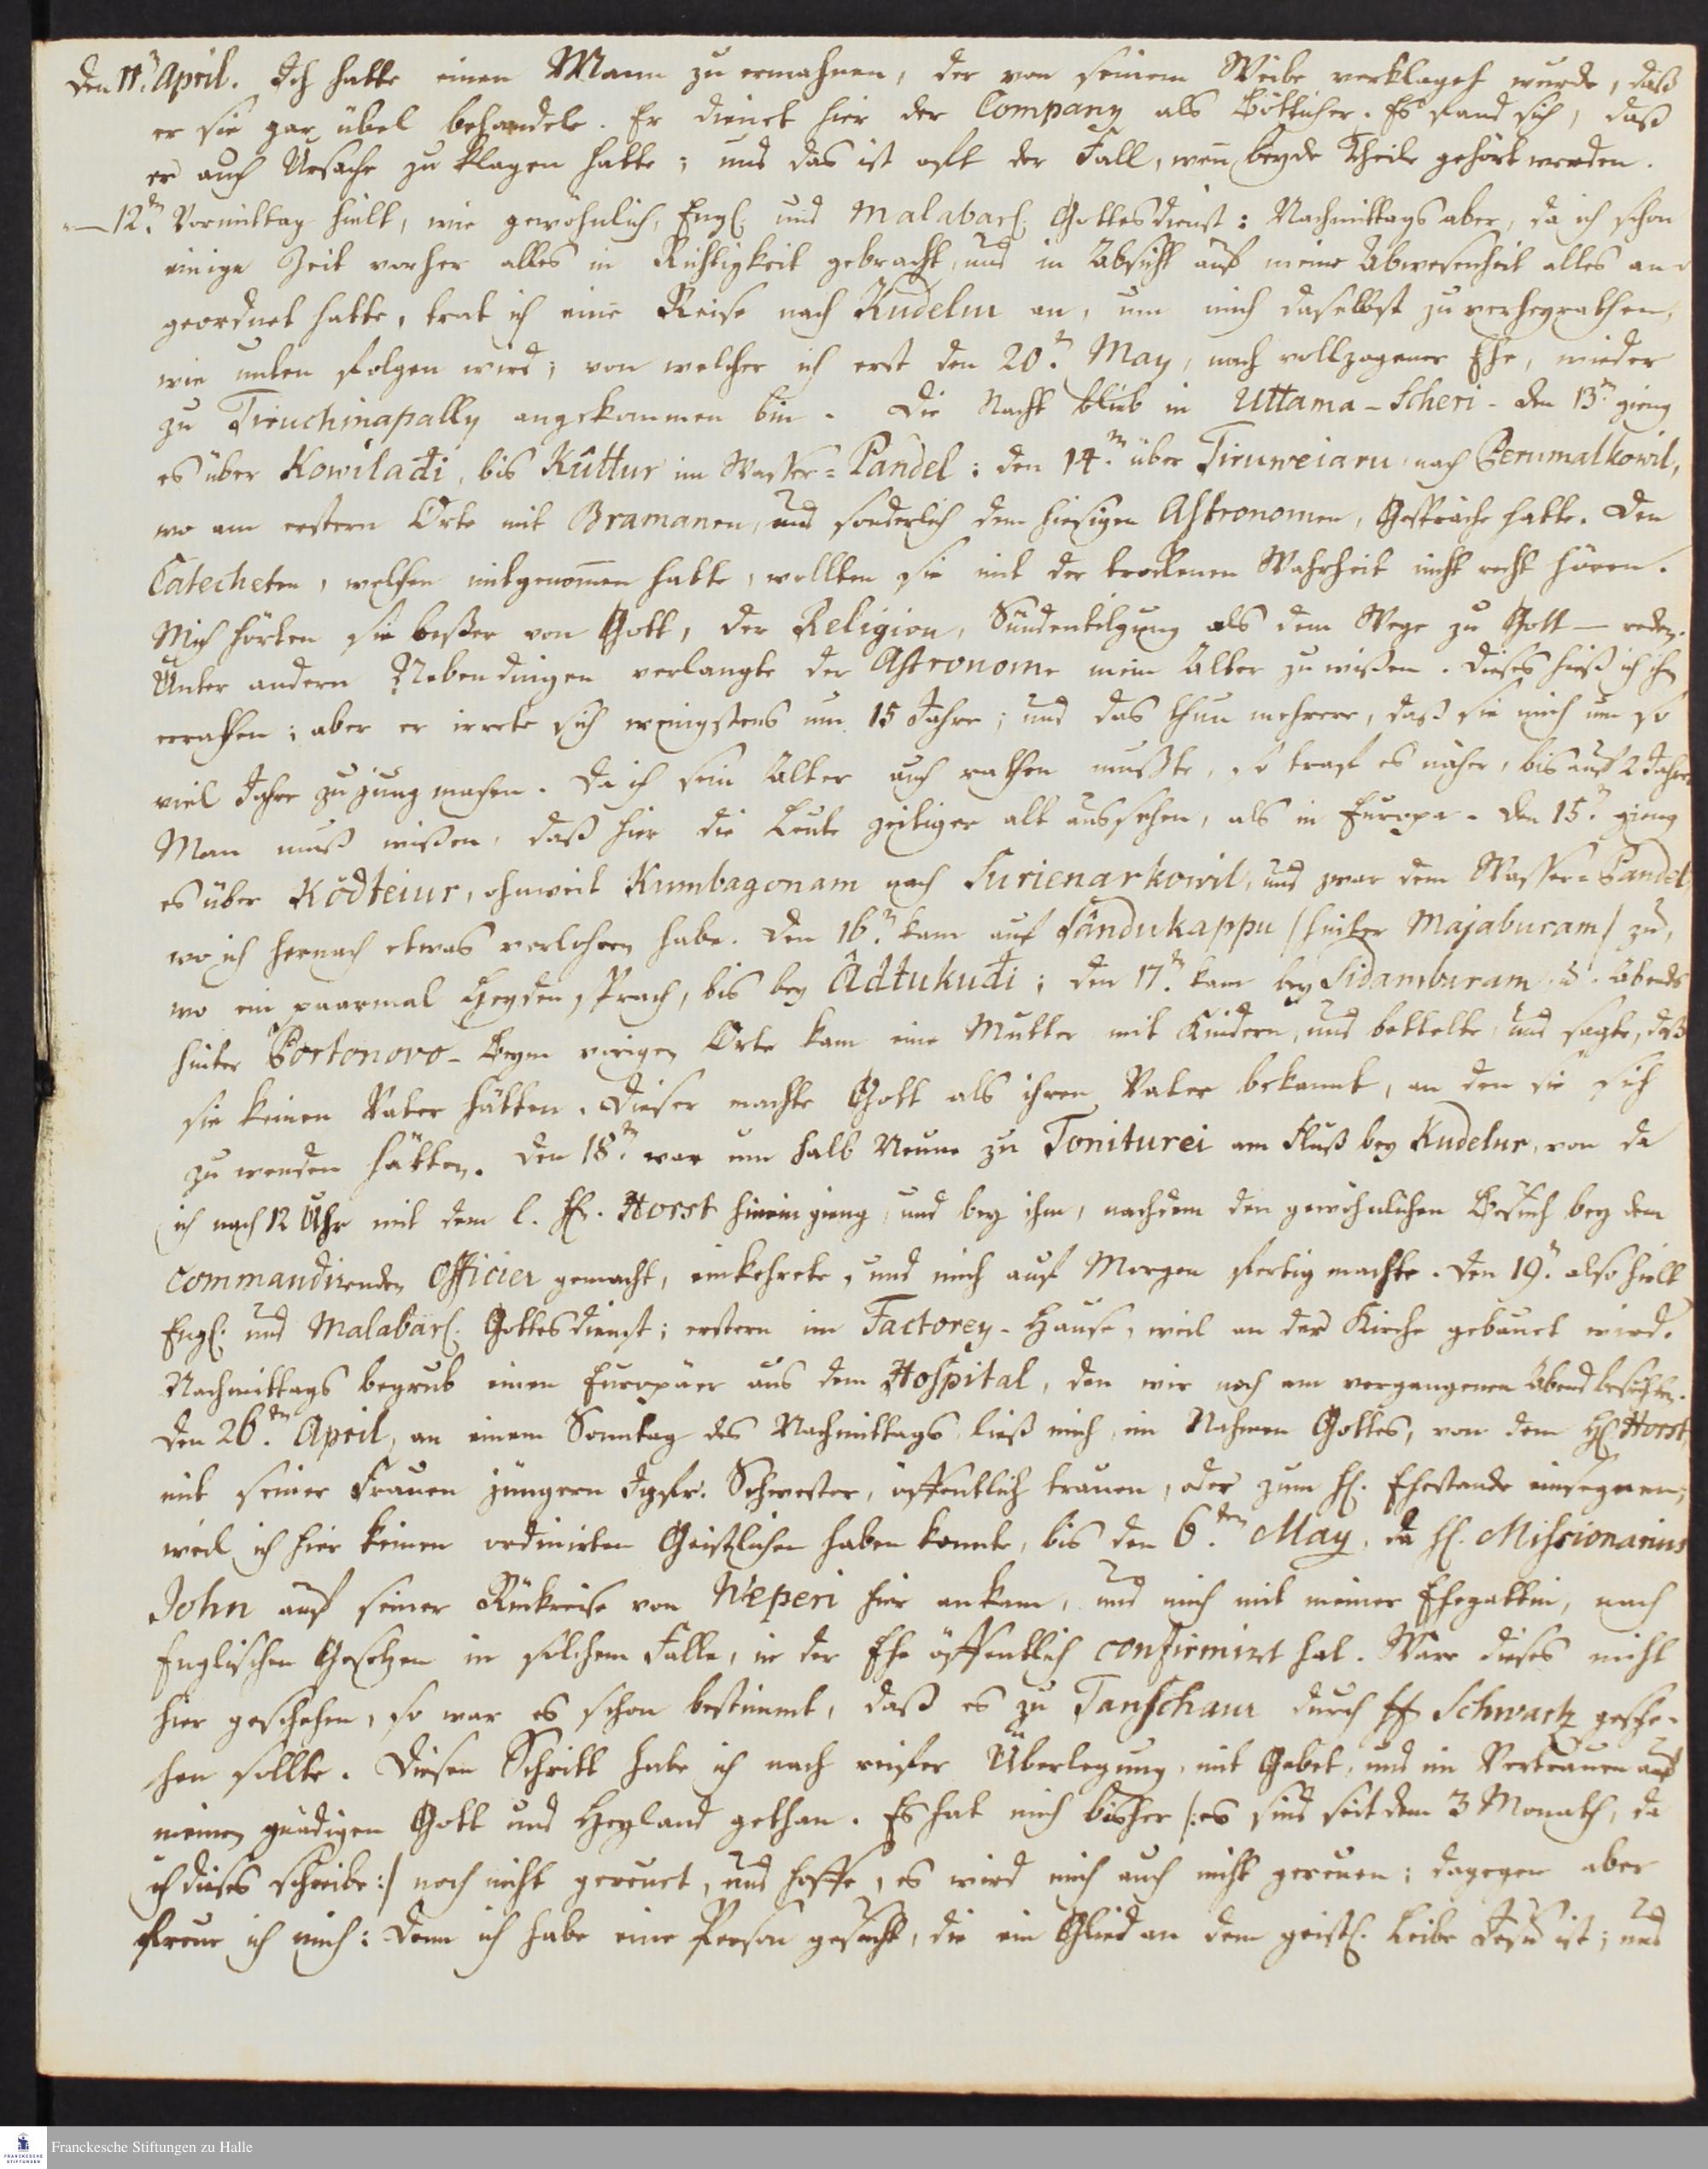 Den 11.t April. Ich hatte einen Mann zu ermahnen, der von seinem Weibe verklaget wurde, daß
er sie gar übel behandele. Er dienet hier der Company als Böttiher. Es fand sich, daß
er auch Ursache zu klagen hatte; und das ist oft der Fall, weñ beyde Theile gehört werden.
— 12.tn Vormittag hielt, wie gewöhnlich, Engl. und Malabarl. Gottesdienst: Nachmittags aber, da ich schon
einige Zeit vorher alles in Richtigkeit gebracht, und in Absicht auf meine Abwesenheit alles an
geordnet hatte, trat ich eine Reise nach Kudelur an, um mich daselbst zu verheyrathen,
wie unten folgen wird; von welcher ich erst den 20.tn May, nach vollzogener Ehe, wieder
zu Tiruchinapally angekommen bin. Die Nacht blieb in Uttama-Scheri. den 13.tn gieng
es über Kowiladi, bis Kûttur im Wasser-Pandel: den 14.tn über Tiruweiaru nach Perumalkowil,
wo am erstern Orte mit Bramanen, und sonderlich dem hiesigen Astronomen, Gespräche hatte. Den
Catecheten, welchen mitgenom̃en hatte, wollten sie mit der trockenen Wahrheit nicht recht hören.
Mich hörten sie beßer von Gott, der Religion, Sündentilgung als dem Wege zu Gott — reden.
Unter andern Nebendingen verlangte der Astronome mein Alter zu wißen. Dieses hieß ich ihn
errathen; aber er irrete sich wenigstens um 15 Jahre; und das thun mehrere, daß sie mich um so
viel Jahre zu jung machen. Da ich sein Alter auch rathen mußte, so traf es näher, bis auf 2 Jahre
Man muß wißen, daß hier die Leute zeitiger alt aussehen, als in Europa. Den 15.tn gieng
es über Ködteiur, ohnweit Kumbagonam nach Surienarkowil, und zwar dem Wasser-Pandel,
wo ich hernach etwas verlohren habe. Den 16.tn kam auf Sandukappu /hinter Majaburam/ zu,
wo ein paarmal Heyden sprach, bis bey Âdtukudi; den 17.tn kam bey Sidamburam, u. Abends
hinter Portonovo. Beym vorigen Orte kam eine Mutter mit Kindern, und bettelte, und sagte, daß
sie keinen Vater hätten. Dieser machte Gott als ihren Vater bekannt, an den sie sich
zu wenden hätten. Den 18.tn war um halb Neune zu Toniturei am Fluß bey Kudelur, von da
ich nach 12 Uhr mit dem l. Hr. Horst hinein gieng, und bey ihm, nachdem den gewöhnlichen Besuch bey dem
commandirenden Officier gemacht, einkehrete, und mich auf Morgen fertig machte. Den 19.tn also hielt
Engl. und Malabarl. Gottesdienst; erstern im Factorey-Hause, weil an der Kirche gebauet wird.
Nachmittags begrub einen Europäer aus dem Hospital, den wir noch am vergangenen Abend besuchten.
Den 26.ten April, an einem Sonntag des Nachmittags ließ mich, im Nahmen Gottes, von dem H. Horst,
mit seiner Frauen jüngern Jgfr. Schwester, öffentlich trauen, oder zum hl. Ehestande einsegnen;
weil ich hier keinen ordinirten Geistlichen haben konnte, bis den 6.ten May, da H. Missionarius
John auf seiner Rükreise von Weperi hier ankam, und mich mit meiner Ehegattin, nach
Englischen Gesetzen in solchem Falle, in der Ehe öffentlich confirmirt hat. Ware dieses nicht
hier geschehen, so war es schon bestimmt, daß es zu Tanschaur durch H. Schwartz gesche-
hen sollte. Diesen Schritt habe ich nach reifer Überlegung, mit Gebet, und im Vertrauen auf
meinen gnädigen Gott und Heyland gethan. Es hat mich bisher /:es sind seit dem 3 Monath, da
ich dieses schreibe:/ noch nicht gereuet, und hoffe, es wird mich auch nicht gereuen; dagegen aber
freue ich mich: Denn ich habe eine Person gesucht, die ein Glied an dem geistl. Leibe Jesu ist; und
Franckesche Stiftungen zu Halle
FRANCKESCHE
STIFTUNGEN